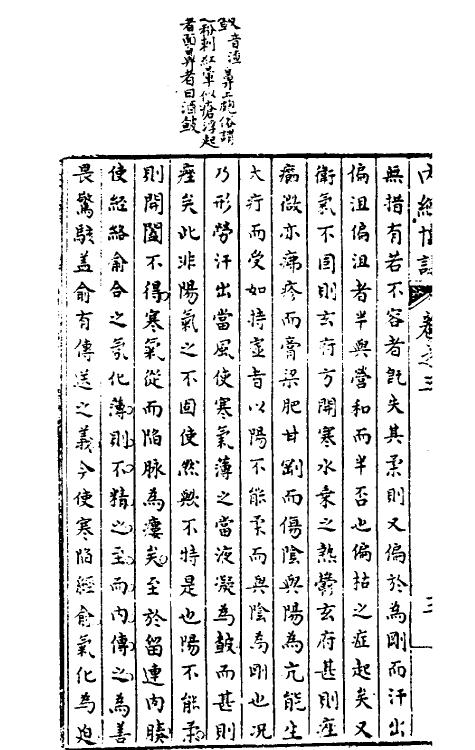 皶音渣鼻上皰俗謂
粉刺紅暈似瘡浮起
者面鼻者曰渣皶
內經博議 卷之三 三
無措有若不容者託失其柔則又偏於為剛而汗出
偏沮偏沮者半與營和而半否也偏枯之症起矣又
衛氣不固則玄府方開寒水乘之熱鬱玄府甚則痤
癤微亦疿疹而膏梁肥甘剛而傷陰與陽為亢能生
大疔而受如持虛皆以陽不能柔而與陰為剛也况
乃形勞汗出當風使寒氣薄之當液凝為皶而甚則
痤矣此非陽氣之不固使然歟不特是也陽不能柔
則開闔不得寒氣從而陷脉為瘻矣至於留連肉腠
使經絡俞合之氣化薄則不精之至而內傳之為善
畏驚駭盖俞有傳送之義今使寒陷經俞氣化為迫